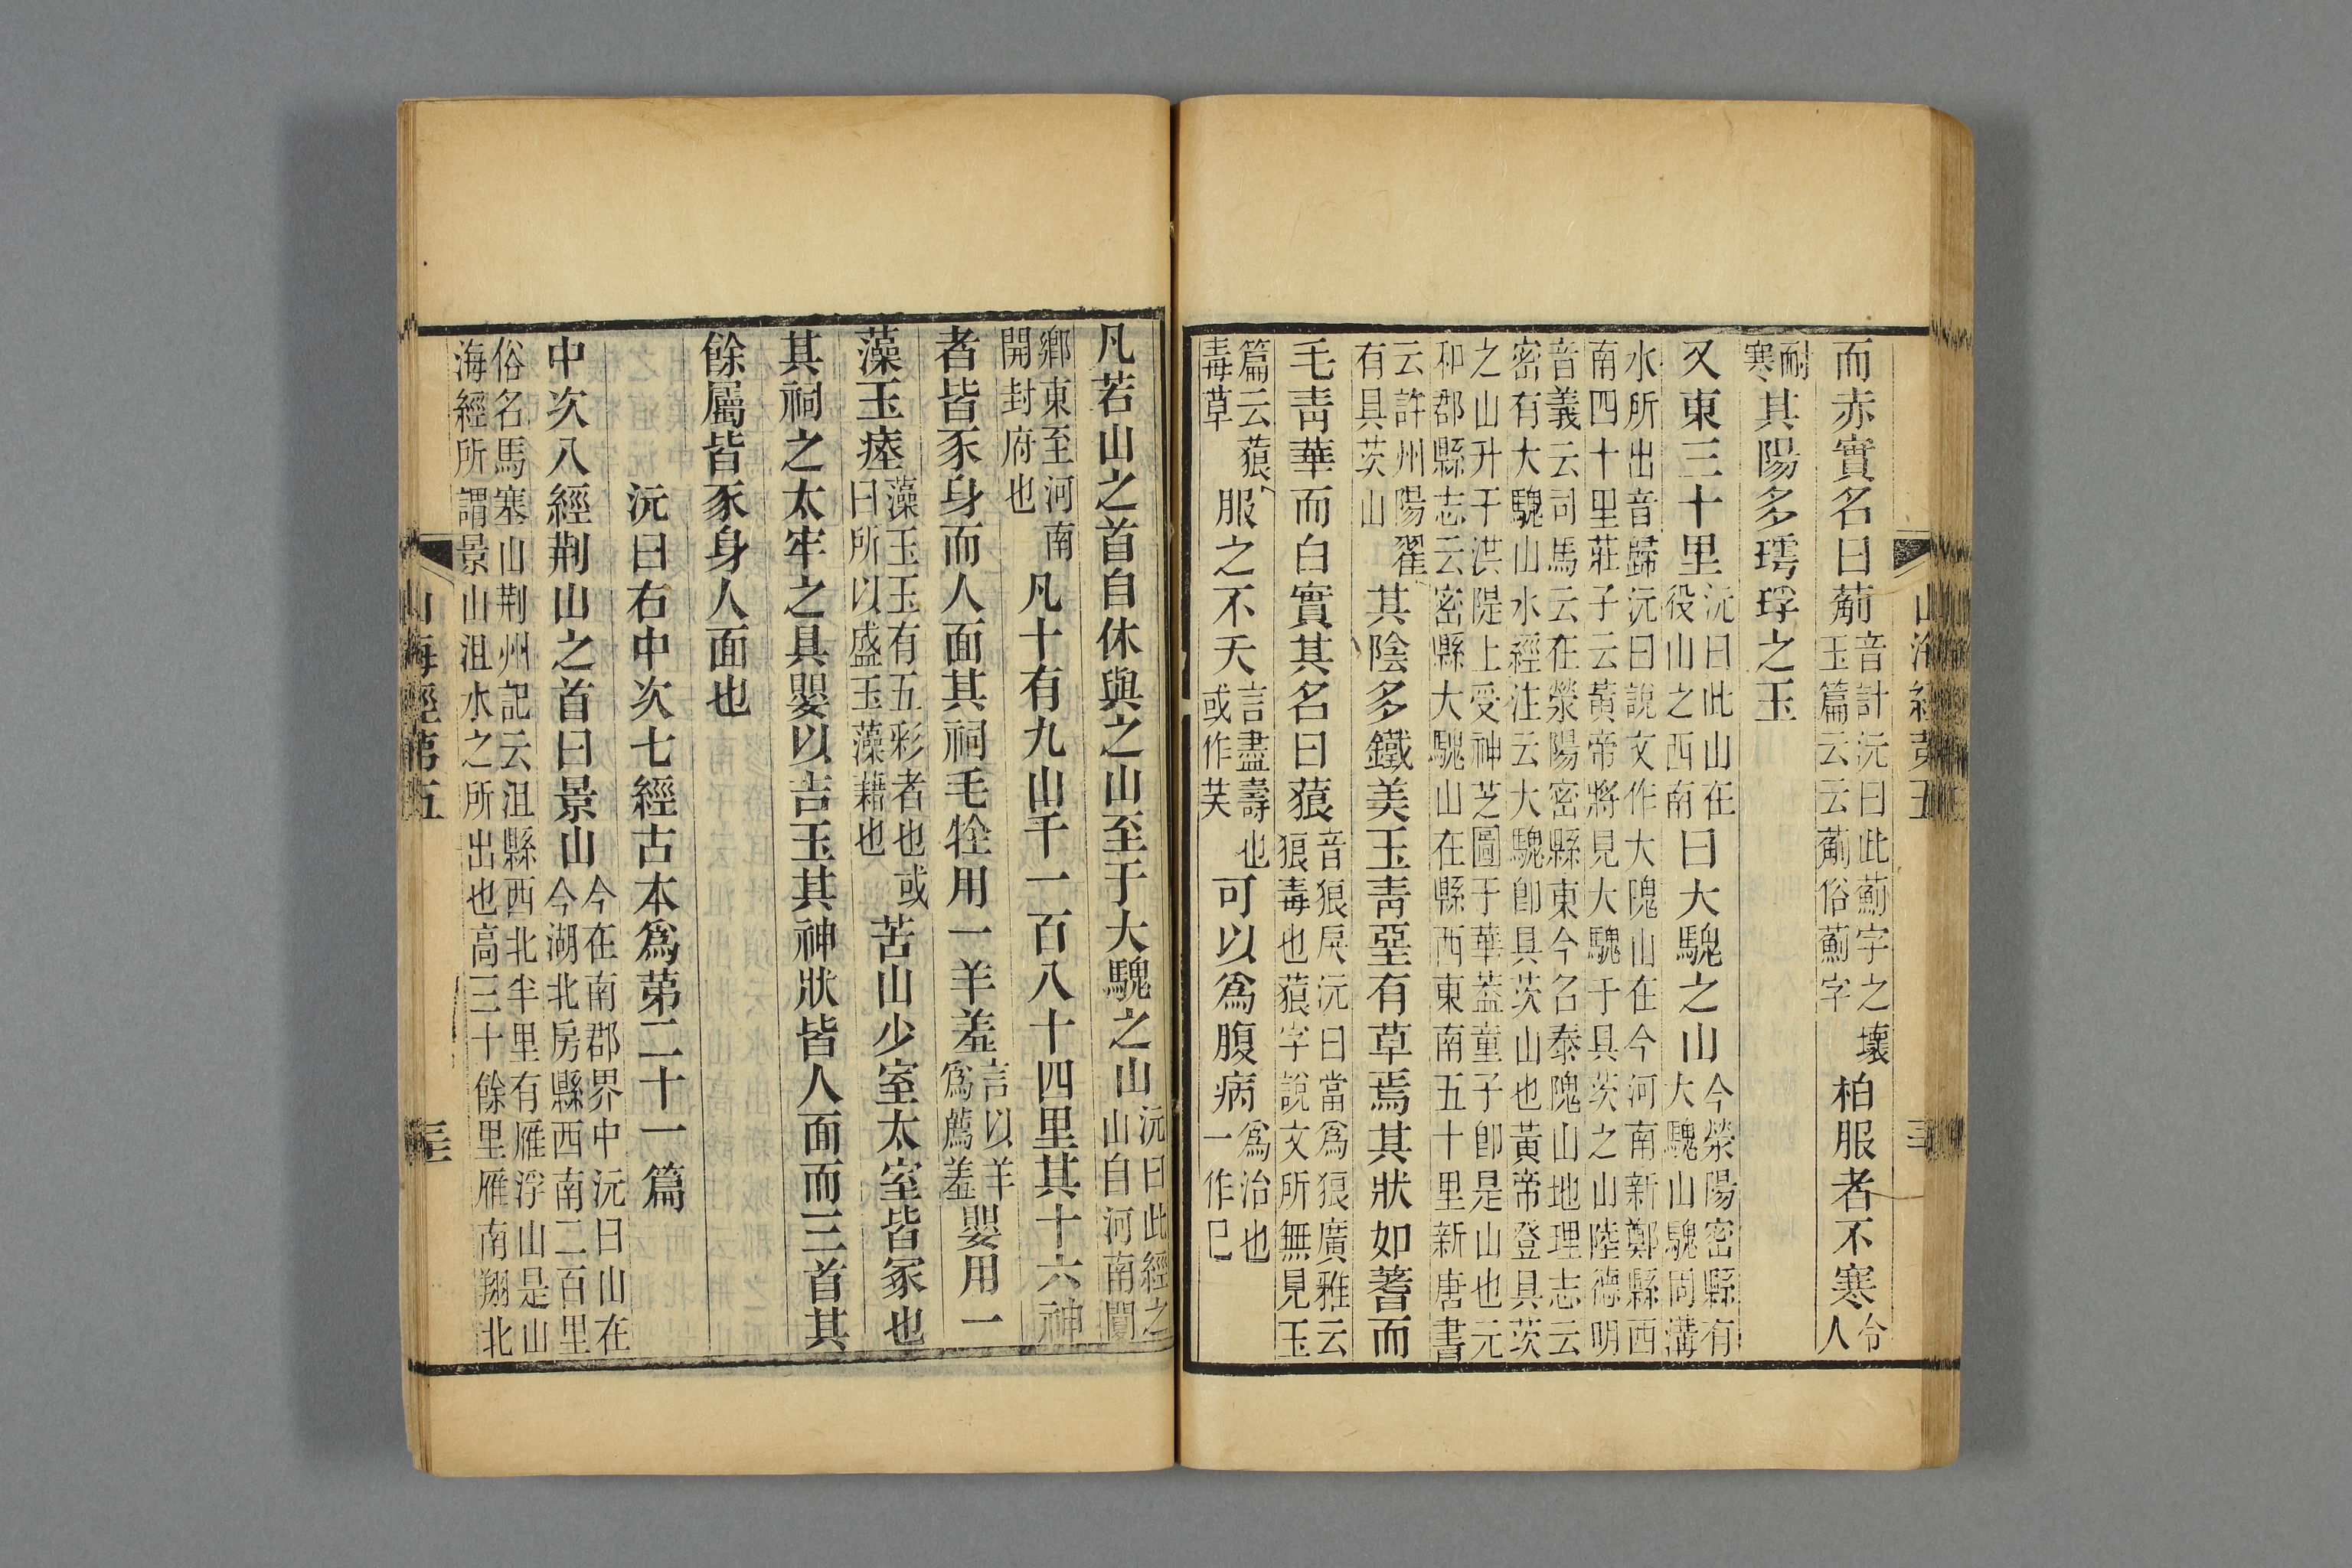 而赤實名曰葪音計沅曰此薊字之壞玉篇云云葪俗薊字柏服者不寒令人
耐寒其陽多㻬琈之玉
又東三十里沅曰此山在役山之西南曰大騩之山今滎陽密縣有大騩山騩固溝
水所出音歸沅曰說文作大隗山在今河南新鄭縣西南四十里莊子云黃帝將見大騩于具茨之山陸德明
音義云司馬云在滎陽密縣東今名泰隗山地理志云密有大騩山水經注云大騩卽具茨山也黃帝登具茨
之山升于洪隄上受神芝圖于華蓋童子卽是山也元和郡縣志云密縣大騩山在縣西東南五十里新唐書
云許州陽翟有具茨山其陰多鐵美玉靑堊有草焉其狀如蓍而
毛靑華而白實其名曰䓴音狼戾沅曰當爲狼廣雅云狼毒也䓴字說文所無見玉
篇云䓴毒草服之不夭言盡壽也或作芺可以爲腹病爲治也一作已
凡苦山之首自休與之山至于大騩之山沅曰此經之山自河南閿
鄉東至河南開封府也凡十有九山千一百八十四里其十六神
者皆豕身而人面其祠毛牷用一羊羞言以羊爲薦羞嬰用一
藻玉瘞藻玉玉有五彩者也或曰所以盛玉藻藉也苦山少室太室皆冢也
其祠之太牢之具嬰以吉玉其神狀皆人面而三首其
餘屬皆豕身人面也
沅曰右中次七經古本爲第二十一篇
中次八經荆山之首曰景山今在南郡界中沅曰山在今湖北房縣西南二百里
俗名馬塞山荆州記云沮縣西北半里有雁浮山是山海經所謂景山沮水之所出也高三十餘里雁南翔北
山海經第五